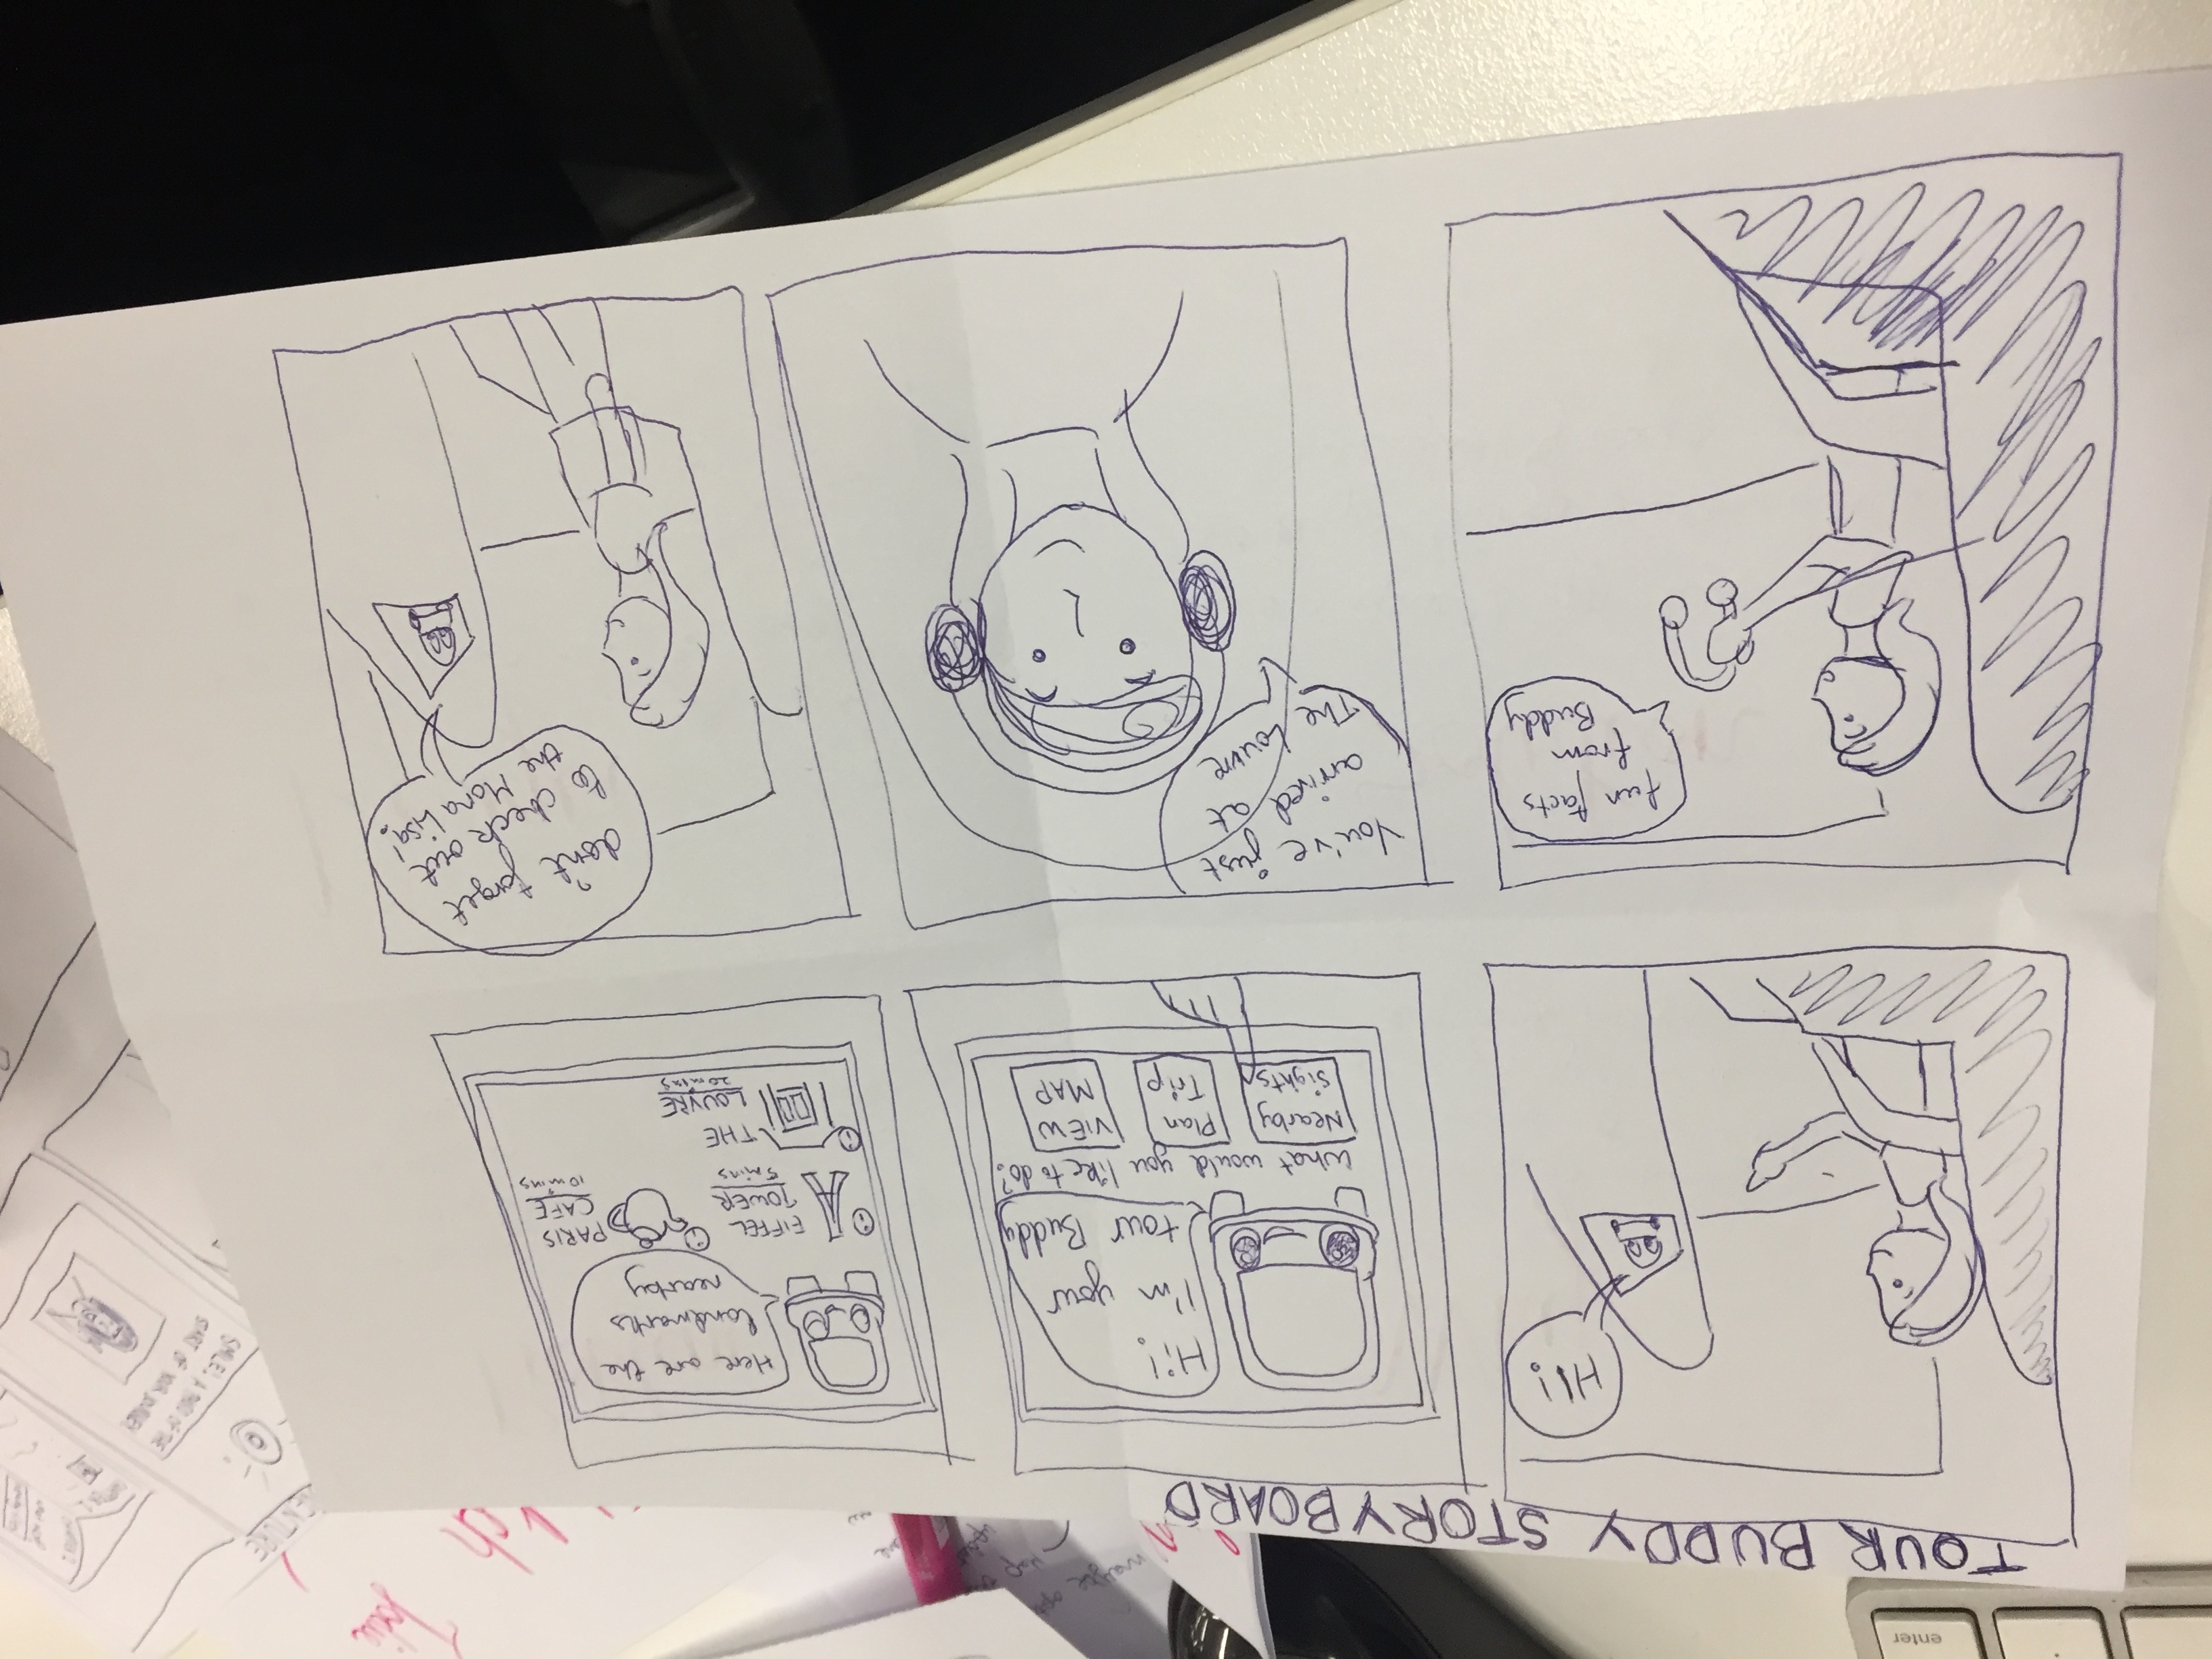 TOUR BUDDY STORYBOARD
HI!
Hi!
I'm your
tour Buddy
What would you like to do?
Nearby
Sights
Plan
Trip
VIEW
MAP
Here are the
landmarks
nearby
EIFFEL
TOWER
5 mins
PARIS
CAFE
10 mins
THE
LOUVRE
20 mins
fun facts
from
Buddy
You've just
arrived at
The Louvre
don't forget
to check out
the Mona Lisa!
SMILE!, A PHOTO OF THE
START OF YOUR JOURNEY
enter